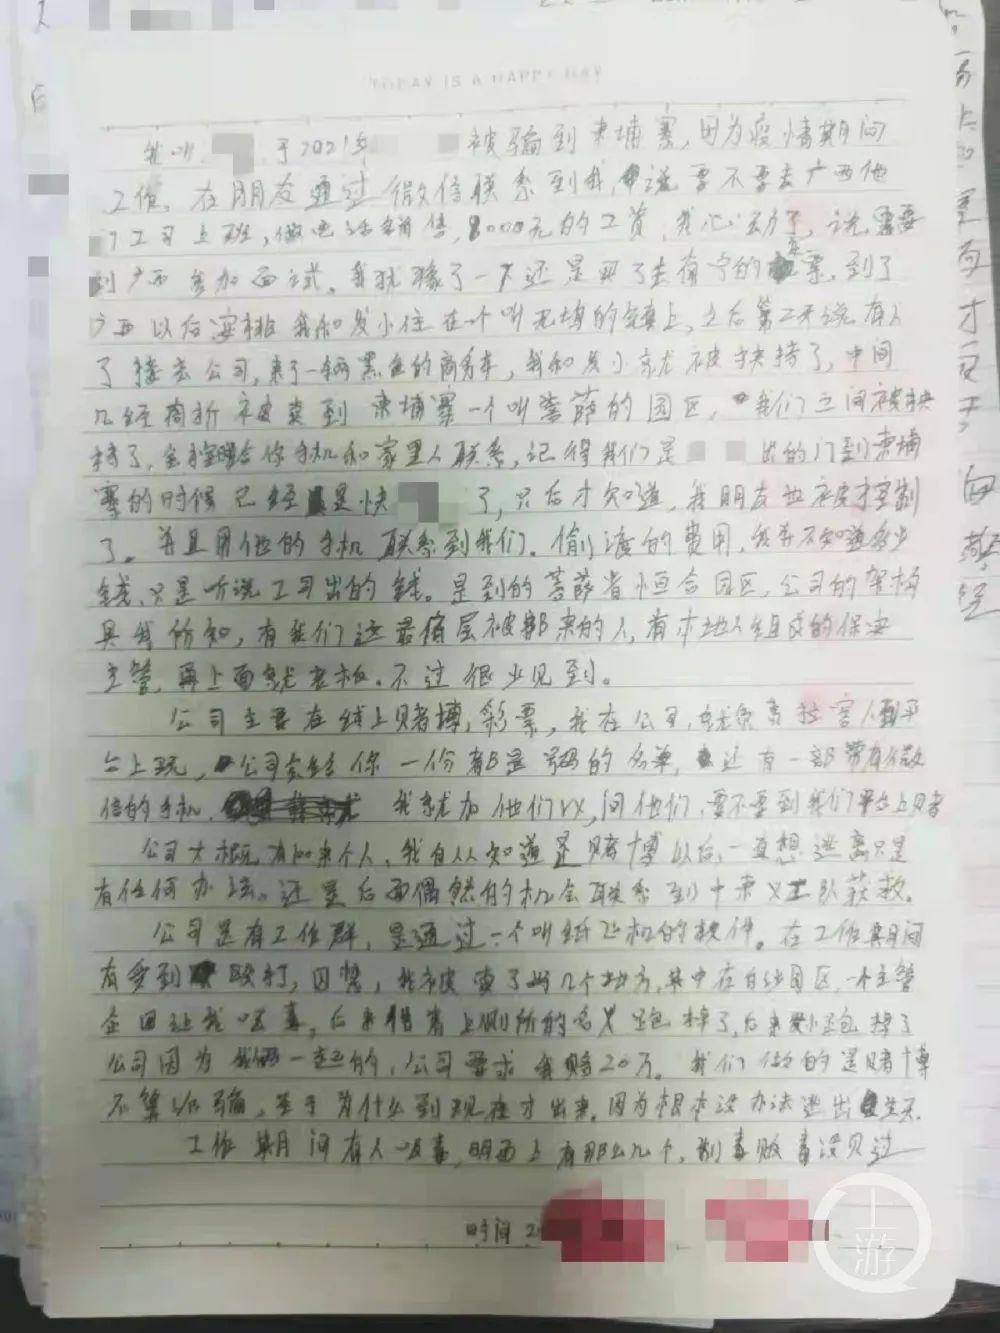 TODAY IS A HAPPY DAY
我叫 于2021年 被骗到柬埔寨,因为疫情期间
工作。在朋友通过微信联系到我,说要不要去广西他
们工司上班,做电话销售,8000元的工资,我心动了,说需要
到广西参加面试。我犹豫了一下还是买了去南宁的票,到了
广西以后安排我和发小住在一个叫 的镇上,之后第二天说有人
了接去公司,来了一辆黑色的商务车,我和发小就被挟持了,中间
几经周折被卖到柬埔寨一个叫菩萨的园区,我们之间被挟
持了,会 给你手机和家里人联系,记得我们是 出的门到柬埔
寨的时候已经是快 了,只后才知道,我朋友也被控制
了。并且用他的手机联系到我们。偷渡的费用,我并不知道多少
钱,只是听说工司出的钱。是到的菩萨省恒合园区,公司的架构
具我所知,有我们这最底层被骗来的人,有本地人组成的保安
主管,再上面就老板。不过很少见到。
公司主要在线上赌博,彩票,我在公司,就负责拉客人到平
台上玩,公司会给你一份都是号码的名单,还有一部带有微
信的手机, 我就加他们以,问他们,要不要到我们平台上赌
公司大概有 来个人,我自从知道是赌博以后,一直想逃离只是
有任何办法。还是后面偶然的机会联系到 柬义工队获救。
公司是有工作群,是通过一个叫纸飞机的软件。在工作期间
有受到殴打,囚禁,我被卖了好几个地方,其中在 园区,一个主管
企图让我吸毒,后来借着上厕所的名义跑掉了,后来 跑掉了
公司因为我们一起的,公司要求我赔20万。我们做的是赌博
不算诈骗,至于为什么到现在才出来,因为根本没办法逃出
工作期间有人吸毒,明面上有那么几个,制毒贩毒没见过
时间 2
上游